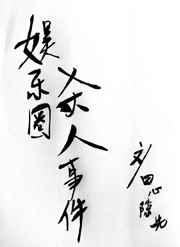 娱乐圈
杀人事件
文田心隐为